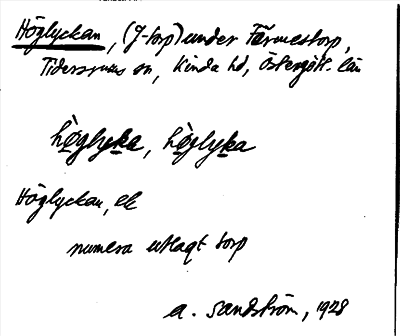 Höglyckan, (J-torp) under Färmestorp,
Tidersrums sn, Kinda hd, Östergötl. län
höglyka, höglyka
Höglyckan, ek
numera utlagt torp
A. Sandström, 1928